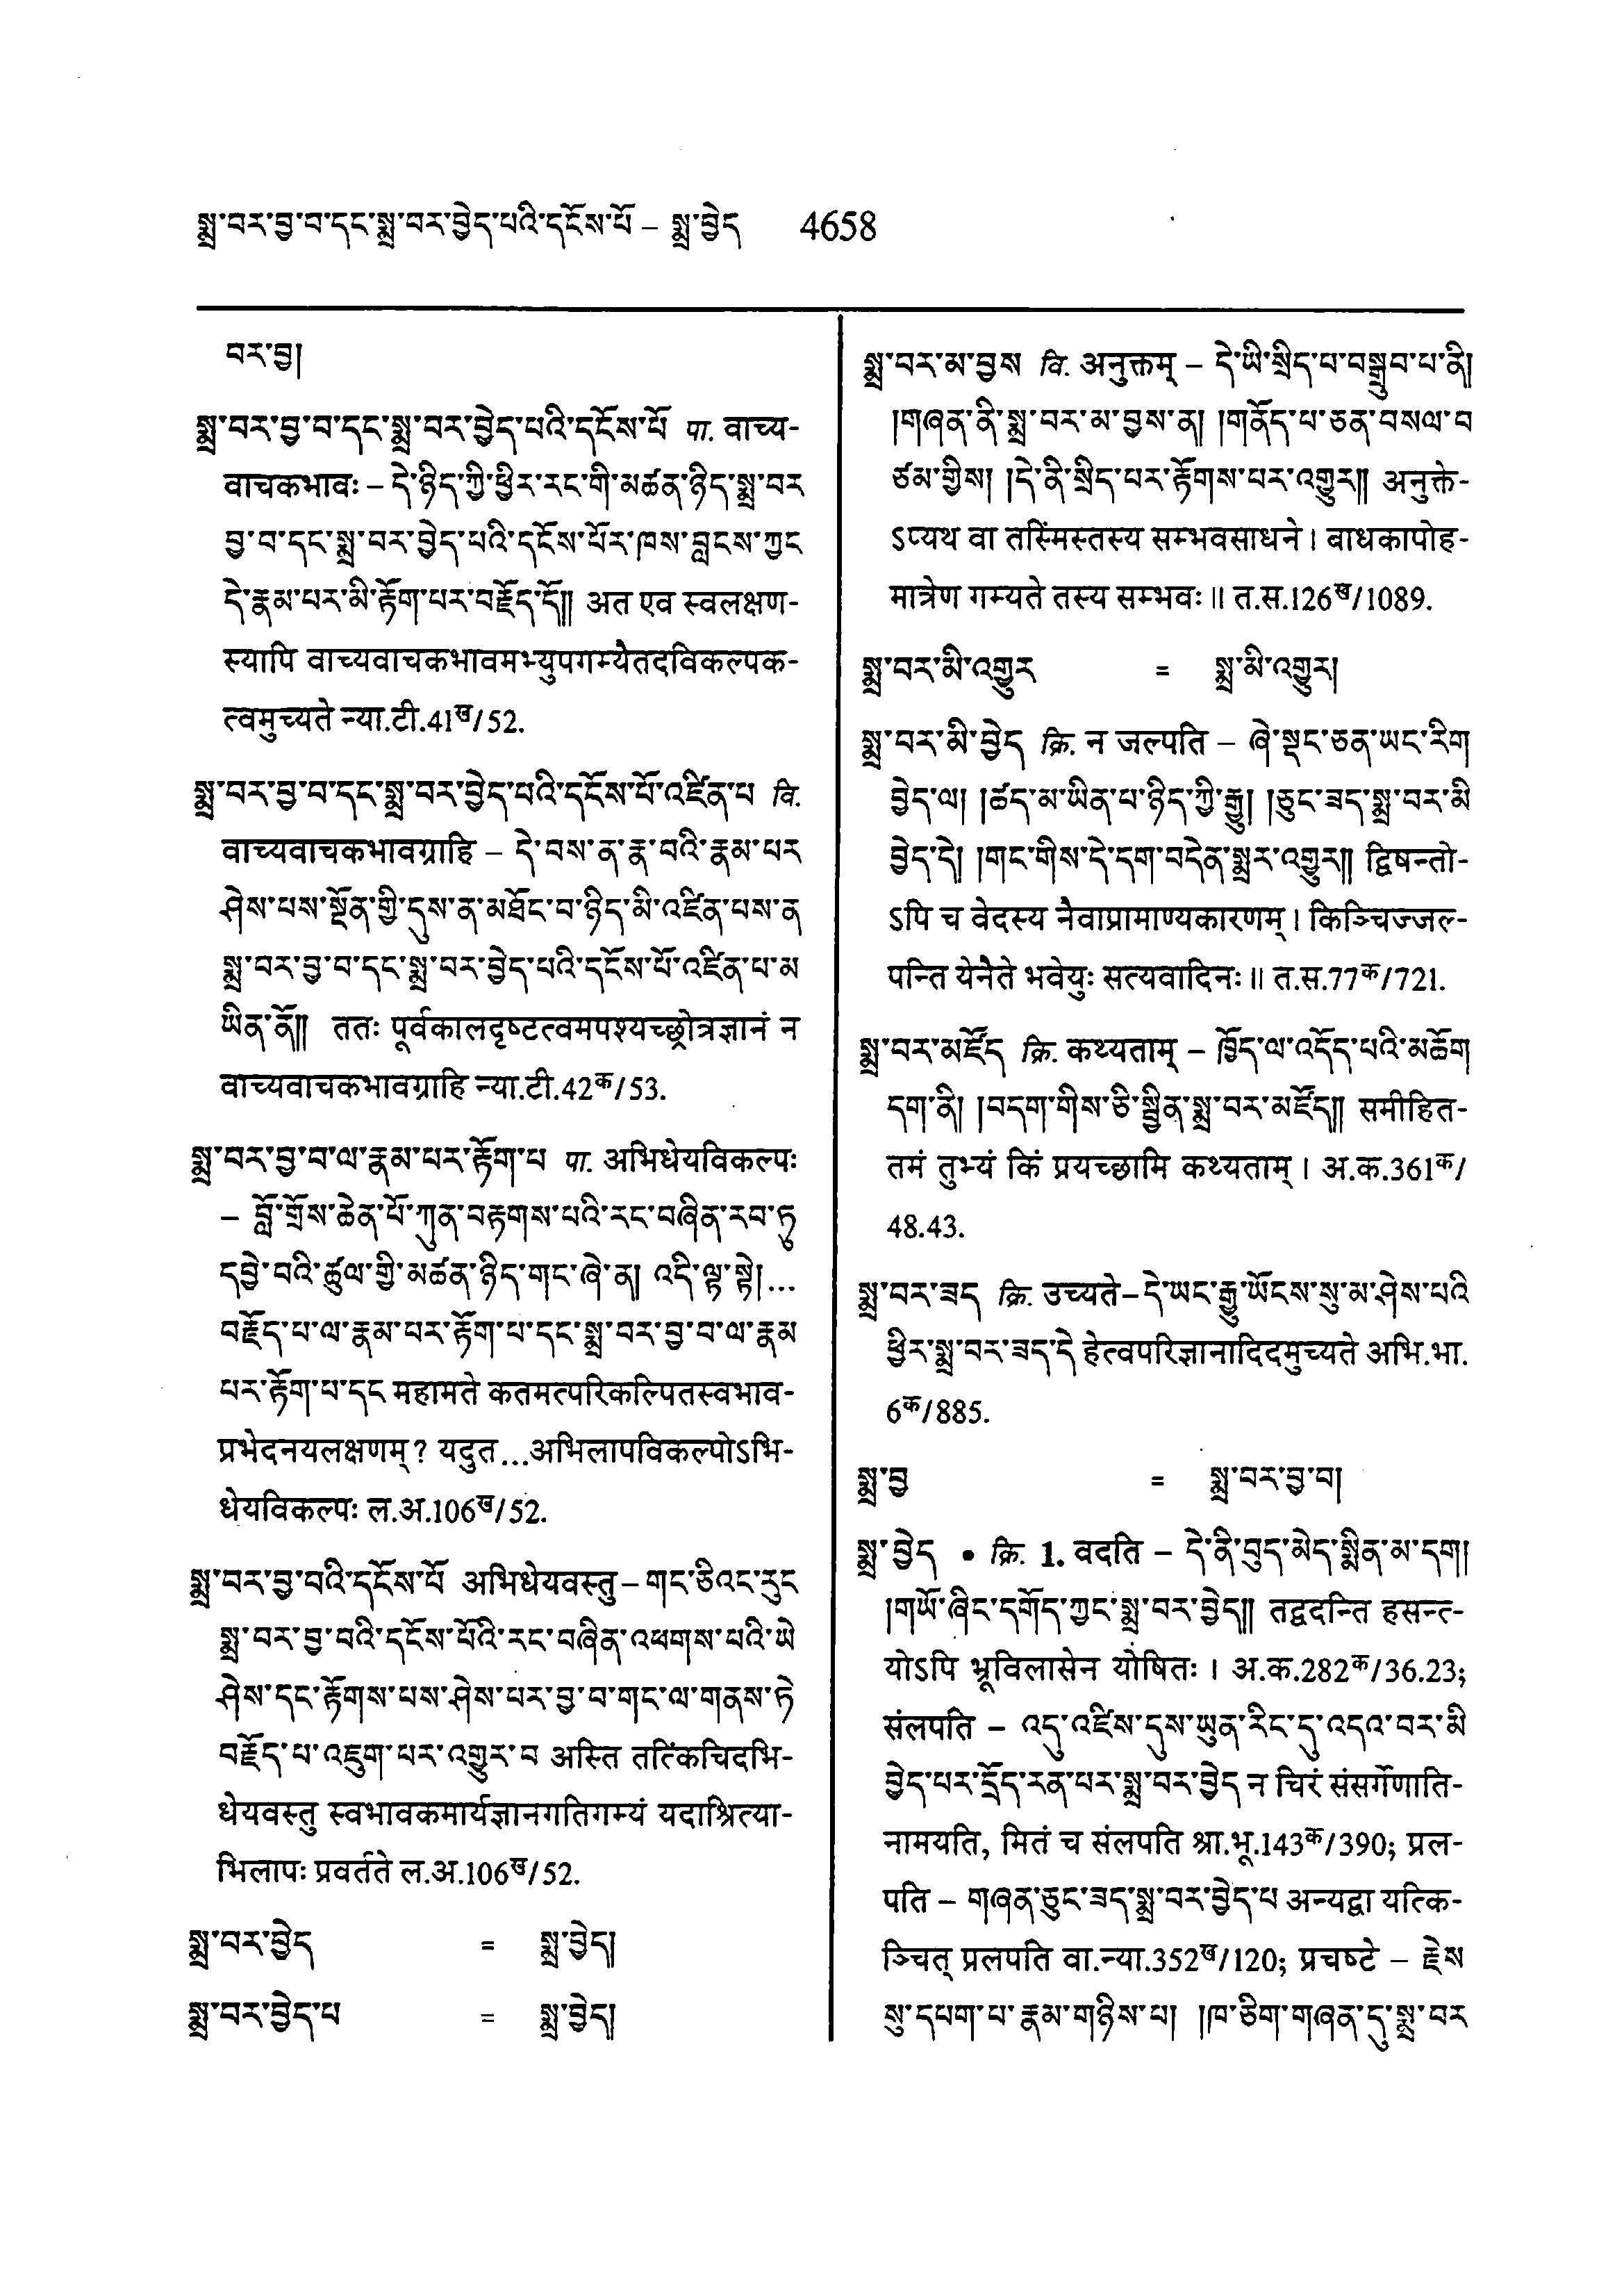 སྨྲ་བར་བྱ་བ་དང་སྨྲ་བར་བྱེད་པའི་དངོས་པོ – སྨྲ་བྱེད 4658
བར་བྱ།
སྨྲ་བར་བྱ་བ་དང་སྨྲ་བར་བྱེད་པའི་དངོས་པོ पा. वाच्य-
वाचकभावः – དེ་ཉིད་ཀྱི་ཕྱིར་རང་གི་མཚན་ཉིད་སྨྲ་བར
བྱ་བ་དང་སྨྲ་བར་བྱེད་པའི་དངོས་པོར་ཁས་བླངས་ཀྱང
དེ་རྣམ་པར་མི་རྟོག་པར་བརྗོད་དོ།། अत एव स्वलक्षण-
स्यापि वाच्यवाचकभावमभ्युपगम्यैतदविकल्पक-
त्वमुच्यते न्या.टी.41ख/52.
སྨྲ་བར་བྱ་བ་དང་སྨྲ་བར་བྱེད་པའི་དངོས་པོ་འཛིན་པ वि.
वाच्यवाचकभावग्राहि – དེ་བས་ན་རྣ་བའི་རྣམ་པར
ཤེས་པས་སྔོན་གྱི་དུས་ན་མཐོང་བ་ཉིད་མི་འཛིན་པས་ན
སྨྲ་བར་བྱ་བ་དང་སྨྲ་བར་བྱེད་པའི་དངོས་པོ་འཛིན་པ་མ
ཡིན་ནོ།། ततः पूर्वकालदृष्टत्वमपश्यच्छ्रोत्रज्ञानं न
वाच्यवाचकभावग्राहि न्या.टी.42क/53.
སྨྲ་བར་བྱ་བ་ལ་རྣམ་པར་རྟོག་པ पा. अभिधेयविकल्पः
– བློ་གྲོས་ཆེན་པོ་ཀུན་བརྟགས་པའི་རང་བཞིན་རབ་ཏུ
དབྱེ་བའི་ཚུལ་གྱི་མཚན་ཉིད་གང་ཞེ་ན། འདི་ལྟ་སྟེ།...
བརྗོད་པ་ལ་རྣམ་པར་རྟོག་པ་དང་སྨྲ་བར་བྱ་བ་ལ་རྣམ
པར་རྟོག་པ་དང महामते कतमत्परिकल्पितस्वभाव-
प्रभेदनयलक्षणम्? यदुत...अभिलापविकल्पोऽभि-
धेयविकल्पः ल.अ.106ख/52.
སྨྲ་བར་བྱ་བའི་དངོས་པོ अभिधेयवस्तु – གང་ཅིའང་རུང
སྨྲ་བར་བྱ་བའི་དངོས་པོའི་རང་བཞིན་འཕགས་པའི་ཡེ
ཤེས་དང་རྟོགས་པས་ཤེས་པར་བྱ་བ་གང་ལ་གནས་ཏེ
བརྗོད་པ་འཇུག་པར་འགྱུར་བ अस्ति तत्किंचिदभि-
धेयवस्तु स्वभावकमार्यज्ञानगतिगम्यं यदाश्रित्या-
भिलापः प्रवर्तते ल.अ.106ख/52.
སྨྲ་བར་བྱེད = སྨྲ་བྱེད།
སྨྲ་བར་བྱེད་པ = སྨྲ་བྱེད།
སྨྲ་བར་མ་བྱས वि. अनुक्तम् – དེ་ཡི་སྲིད་པ་བསྒྲུབ་པ་ནི།
།གཞན་ནི་སྨྲ་བར་མ་བྱས་ན། །གནོད་པ་ཅན་བསལ་བ
ཙམ་གྱིས། །དེ་ནི་སྲིད་པར་རྟོགས་པར་འགྱུར།། अनुक्ते-
ऽप्यथ वा तस्मिंस्तस्य सम्भवसाधने। बाधकापोह-
मात्रेण गम्यते तस्य सम्भवः॥ त.स.126ख/1089.
སྨྲ་བར་མི་འགྱུར = སྨྲ་མི་འགྱུར།
སྨྲ་བར་མི་བྱེད क्रि. न जल्पति – ཞེ་སྡང་ཅན་ཡང་རིག
བྱེད་ལ། །ཚད་མ་ཡིན་པ་ཉིད་ཀྱི་རྒྱུ། །ཅུང་ཟད་སྨྲ་བར་མི
བྱེད་དེ། །གང་གིས་དེ་དག་བདེན་སྨྲར་འགྱུར།། द्विषन्तो-
ऽपि च वेदस्य नैवाप्रामाण्यकारणम्। किञ्चिज्जल्-
पन्ति येनैते भवेयुः सत्यवादिनः॥ त.स.77क/721.
སྨྲ་བར་མཛོད क्रि. कथ्यताम् – ཁྱོད་ལ་འདོད་པའི་མཆོག
དག་ནི། །བདག་གིས་ཅི་སྦྱིན་སྨྲ་བར་མཛོད།། समीहित-
तमं तुभ्यं किं प्रयच्छामि कथ्यताम्। अ.क.361क/
48.43.
སྨྲ་བར་ཟད क्रि. उच्यते – དེ་ཡང་རྒྱུ་ཡོངས་སུ་མ་ཤེས་པའི
ཕྱིར་སྨྲ་བར་ཟད་དེ हेत्वपरिज्ञानादिदमुच्यते अभि.भा.
6क/885.
སྨྲ་བྱ = སྨྲ་བར་བྱ་བ།
སྨྲ་བྱེད • क्रि. 1. वदति – དེ་ནི་བུད་མེད་སྨིན་མ་དག།
།གཡོ་ཞིང་དགོད་ཀྱང་སྨྲ་བར་བྱེད།། तद्वदन्ति हसन्त्-
योऽपि भ्रूविलासेन योषितः। अ.क.282क/36.23;
संलपति – འདུ་འཛིས་དུས་ཡུན་རིང་དུ་འདའ་བར་མི
བྱེད་པར་དྲོད་རན་པར་སྨྲ་བར་བྱེད न चिरं संसर्गेणाति-
नामयति, मितं च संलपति श्रा.भू.143क/390; प्रल-
पति – གཞན་ཅུང་ཟད་སྨྲ་བར་བྱེད་པ अन्यद्वा यत्कि-
ञ्चित् प्रलपति वा.न्या.352ख/120; प्रचष्टे – རྗེས
སུ་དཔག་པ་རྣམ་གཉིས་པ། །ཁ་ཅིག་གཞན་དུ་སྨྲ་བར